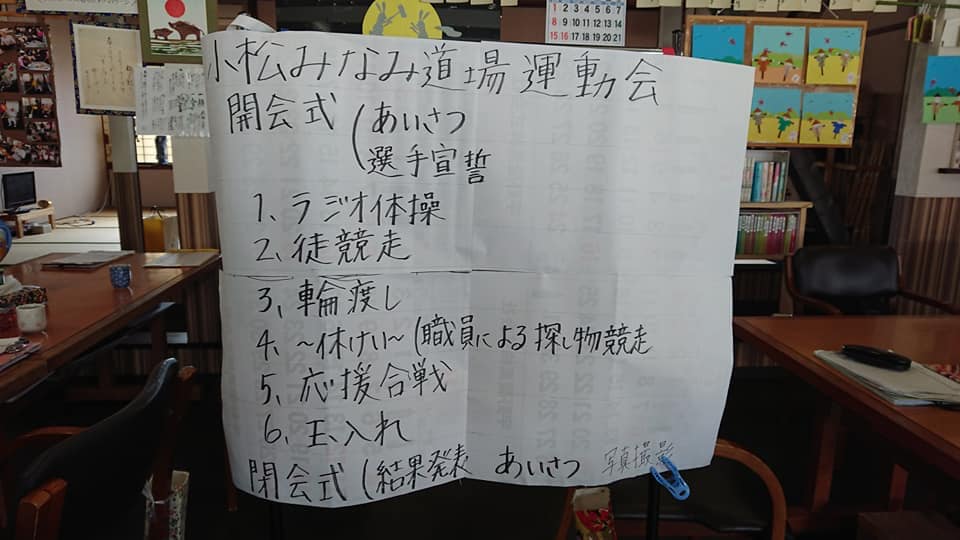 小松みなみ道場運動会
開会式 (あいさつ
選手宣誓
1、ラジオ体操
2、徒競走
3、輪渡し
4、~休けい~ (職員による探し物競走
5、応援合戦
6、玉入れ
閉会式 (結果発表 あいさつ 写真撮影
1 2 3 4 5 6 7
8 9 10 11 12 13 14
15 16 17 18 19 20 21